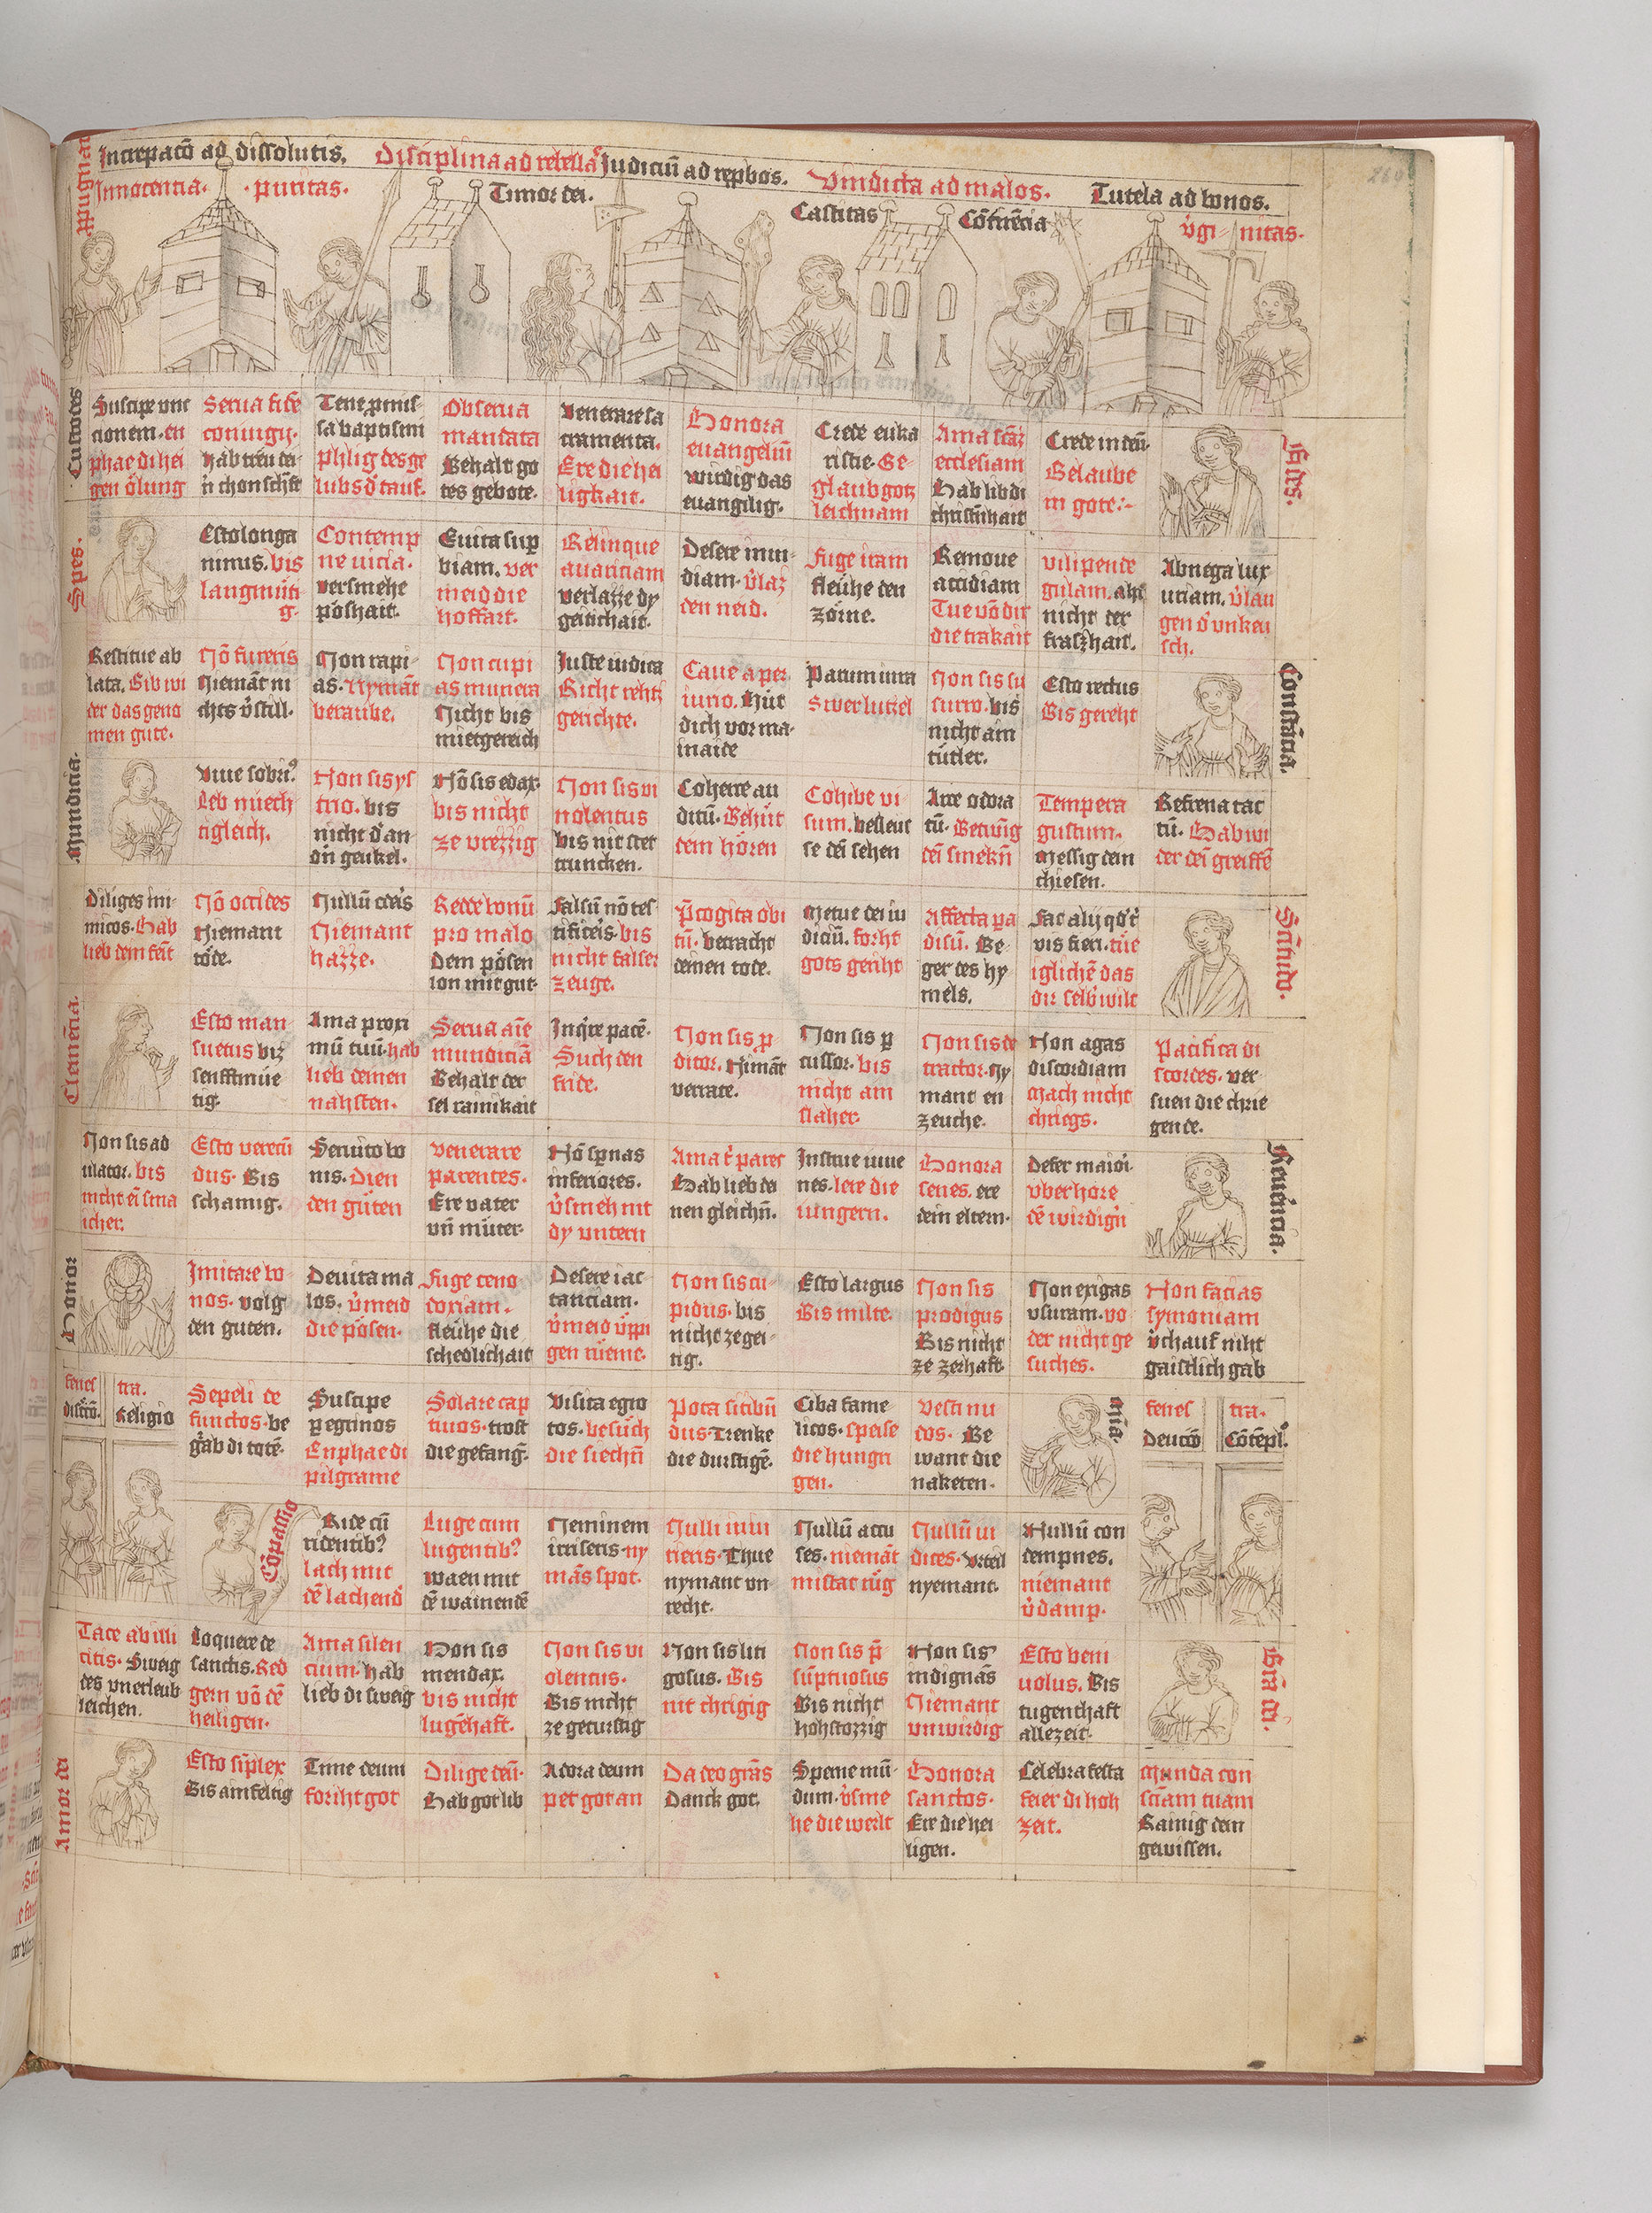 Increpacō ad dissolutis.
Disciplina ad rebella
Judiciū ad repbos.
Vindicta ad malos.
Tutela ad bonos.
Innocentia. puritas.
Timor dei.
Castitas
Cōtinēcia
v̓gi nitas.
Custodes
Suscipe vnc
cionem. en
phae di hei
gen ölung
Serua fidē
coniugij.
hab treu dei
n chonschft
Tene pmis
sa baptismi
phlig des ge
lubs d̓ tauf.
Obserua
mandata
Behalt go
tes gebote.
Venerare sa
cramenta.
Ere die hei
ligkait.
Honora
euangeliū
wirdig das
euangilig.
Crede euka
ristie. Ge-
glaub gotz
leichnam
Ama scāz
ecclesiam
Hab lib di
christnhait
Crede in deū.
Gelaube
in gote:-
Fides.
Spes.
Esto longa
nimus. bis
langmüti
g.
Contemp
ne uicia.
versmehe
poshait.
Euita sup
biam. ver
meid die
hoffart.
Relinque
auariciam
verlazze dy
geitichait.
Desere inui
diam. v̓laz
den neid.
Fuge iram
fleuhe den
zorne.
Remoue
accidiam
Tue vō dir
die trakait
vilipende
gulam. aht
nicht der
fraszhait.
Abnega lux
uriam. v̓lau
gen d̓ vnkeu
sch.
Restitue ab
lata. Gib wi
der das geno
men gute.
Nō fureris
Niemāt ni
chts v̓still.
Non rapi
as. Nymāt
beraube.
Non cupi
as munera
Nicht bis
mietgereich
Juste iudica
Richt rehtz
gerichte.
Caue a per
iurio. Hüt
dich vor ma
inaide
Parum iura
Swer lutzel
Non sis su
surro. bis
nicht ain
tütler.
Esto rectus
Bis gereht
Constācia.
Mundicia.
Viue sobri⁹
Leb nuech
tigleich.
Non sis ys
trio. bis
nicht d̓ an
dn̄ geukel.
Nō sis edax.
bis nicht
ze vrezzig
Non sis vi
nolentus
bis nit stet
truncken.
Coherce au
ditū. Behüt
dein hören
Cohibe vi
sum. bedeut
se dei sehen
Arce odora
tū. Betwūg
dei smekn̄
Tempera
gustum.
Messig dein
chiesen.
Refrena tac
tū. Hab wi
der dei greiffē
Diliges ini
micos. Hab
lieb dein feīt
Nō occides
Niemant
töte.
Nullū oder̓s
Niemant
hazze.
Redde bonū
pro malo
Dem pösen
lon mit gut.
Falsū nō tes
tificer̓s. bis
nicht falser
zeuge.
P̄cogita obi
tū. betracht
deinen tode.
Metue dei iu
diciū. forht
gots geriht
Affecta pa
disū. Be-
ger des hy
mels.
Fac alij qd̓ t̓
vis fieri. tüe
iglichē das
dir selb̓ wilt
Clemēcia.
Esto man
suetus biz
senfftmüe
tig.
Ama proxi
mū tuū. hab
lieb deinen
nahsten.
Serua aīe
mundiciā
Behalt der
sel rainikait
Inq̓re pacē.
Such den
fride.
Non sis p
ditor. Nimāt
verrate.
Non sis p
cussor. bis
nicht ain
slaher.
Non sis de
tractor. Ny
mant en
zeuche.
Non agas
discordiam
Mach nicht
chriegs.
Pacifica di
scordes. ver
suen die chrie
gende.
Non sis ad
ulator. bis
nicht ei sma
icher.
Esto verecū
dus. Bis
schamig.
Seruito bo
nis. Dien
den güten
Venerare
parentes.
Ere vater
vn̄ müter.
Nō sp̄nas
inferiores.
v̓smeh nit
dy vntern
Ama t̓ pares
Hab lieb dei
nen gleichn̄.
Instrue iuue
nes. lere die
iungern.
Honora
senes. ere
dein eltern.
Defer maiori.
vberhöre
dē wirdign̄
Reuerēcia.
Honor
Imitare bo
nos. volg
den guten.
Deuita ma
los. v̓meid
die pösen.
Fuge ceno
doxiam.
fleühe die
schedlichait
Desere iac
tanciam.
v̓meid v̓ppi
gen rüeme.
Non sis cu
pidus. bis
nicht ze gei-
tig.
Esto largus
Bis milte.
Non sis
prodigus
Bis nicht
ze zerhaft.
Non exigas
vsuram. vo
der nicht ge
suches.
Non facias
symoniam
v̓chauf niht
gaistlich gab
fenes tra.
Religio
Sepeli de
functos. be
grab di totē.
Suscipe
pegrinos
Enphae di
pilgrame
Solare cap
tiuos. trost
die gefang̅.
Visita egro
tos. besüch
die siechn̄
Pota sitibū
dus. Trenke
die durstigē.
Ciba fame
licos. speise
die hungri
gen.
Vesti nu
dos. Be
want die
naketen.
fenes tra.
Deuocō Cōtēpl̓.
Cōpassio
Ride cū
ridentib⁹
lach mit
dē lachend̓
Luge cum
lugentib⁹
waen mit
dē wainendē
Neminem
irriseris. ny
mās spot.
Nulli iniu
rieris. Thue
nymant vn
recht.
Nullū accu
ses. niemāt
mistat rüg
Nullū iu
dices. vrteil
nyemant.
Nullū con
dempnes.
niemant
v̓damp.
Tace ab illi
citis. Sweig
des vnerleub
leichen.
Loquere de
sanctis. Red
gern vō dē
heiligen.
Ama silen
cium. hab
lieb di sweig
Non sis
mendax.
bis nicht
lugēhaft.
Non sis vi
olentus.
Bis nicht
ze geturstig
Non sis liti
gosus. Bis
nit chrigig
Non sis p̄
sūptuosus
Bis nicht
hohstozzig
Non sis
indignās
Niemant
vnwirdig
Esto beni
uolus. Bis
tugenthaft
allezeit.
Amor dei
Esto sīplex
Bis ainfeltig
Time deum
foriht got
Dilige deū.
Hab got lib
Adora deum
pet got an
Da deo grās
Danck got.
Sperne mū
dum. v̓sme
he die werlt
Honora
sanctos.
Ere die hei
ligen.
Celebra festa
feier di hoh
zeit.
Munda con
sciam tuam
Rainig dein
gewissen.